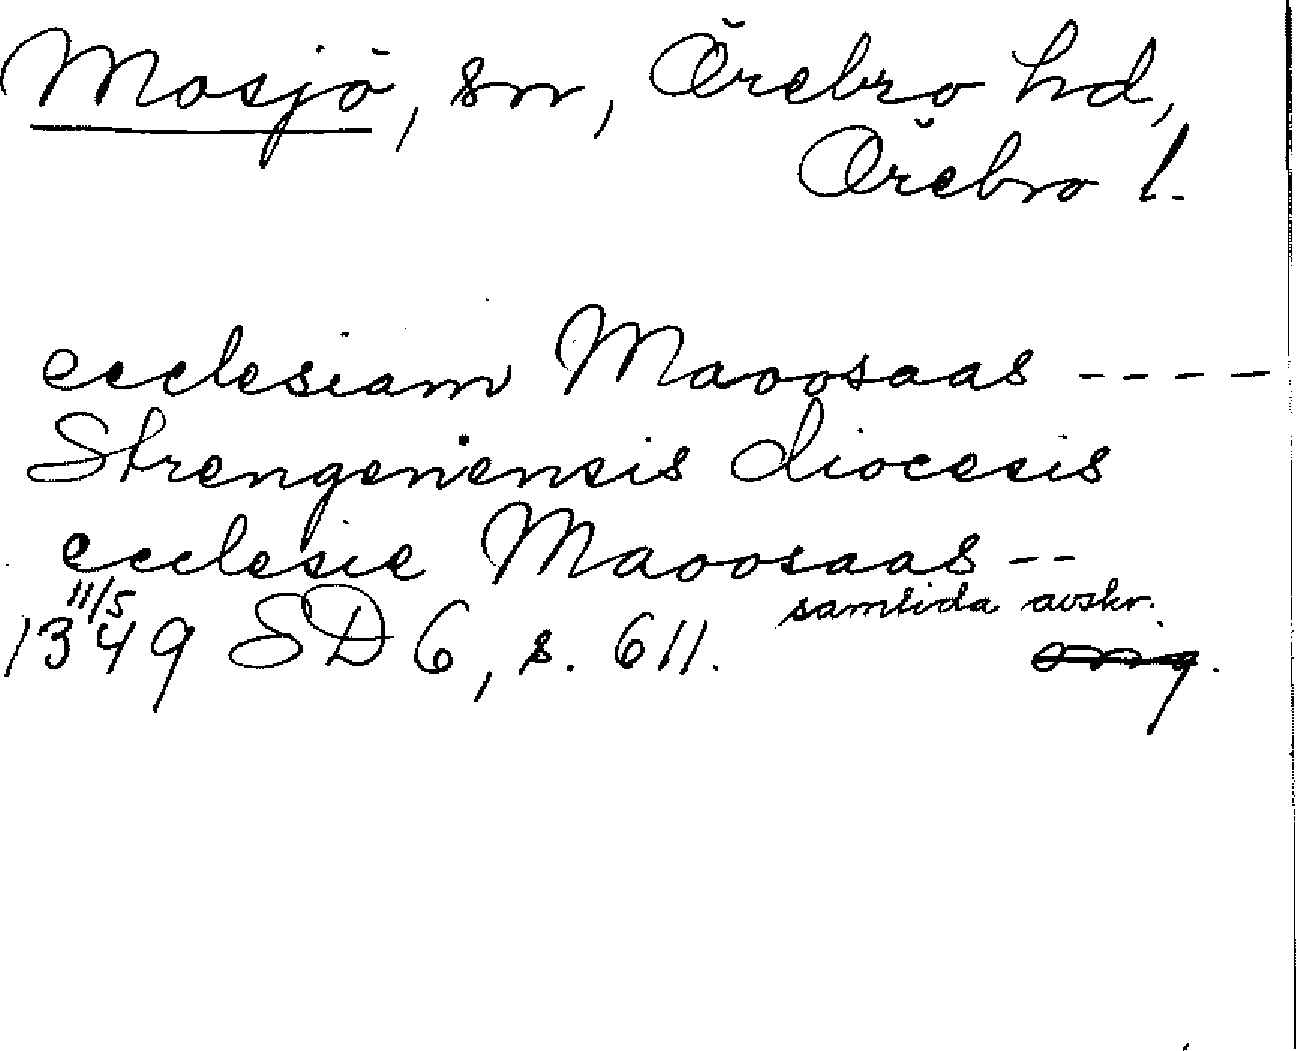 Mosjö, sn, Örebro hd,
Örebro l.
ecclesiam Maoosaas ----
Strengenensis diocesis
ecclesie Maoosaas --
11/5
samtida avskr.
1349 SD 6, s. 611.